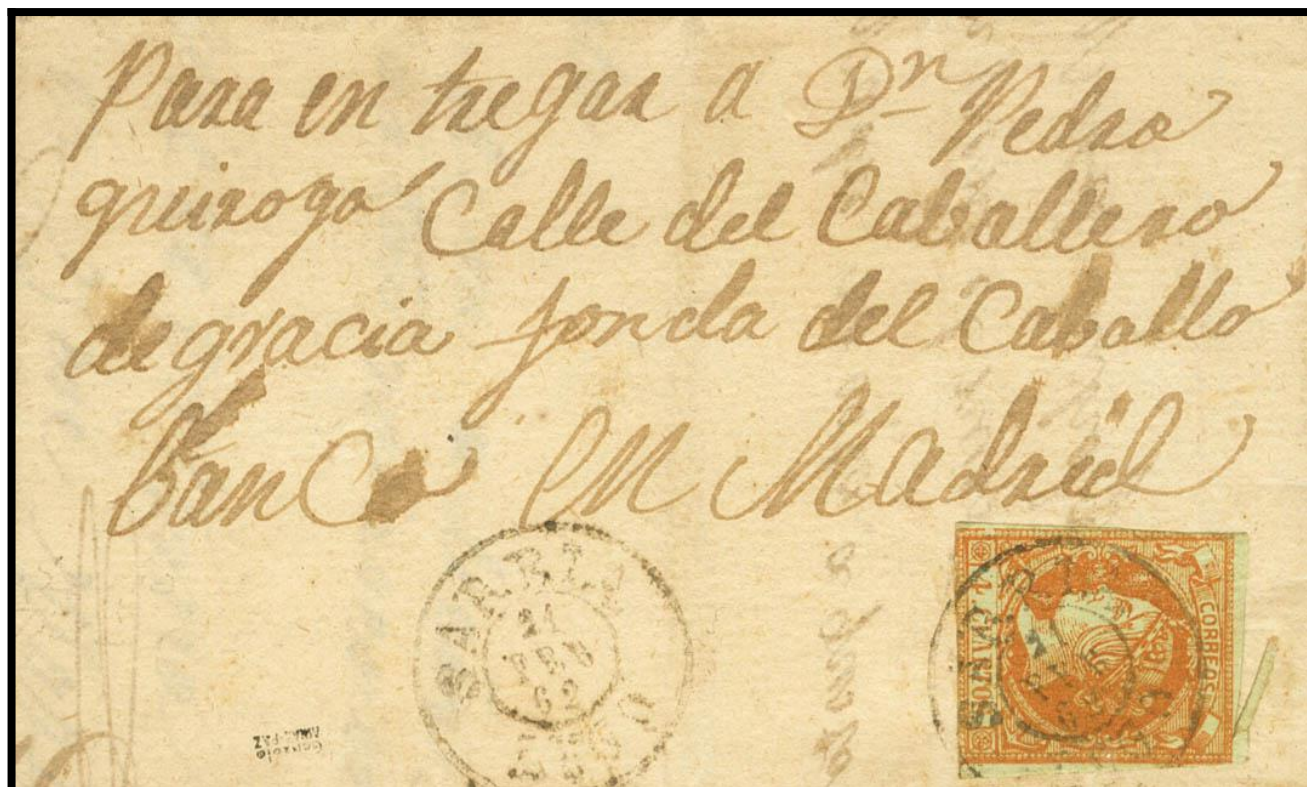 Para en tregar a Dn Pedro
quiroga Calle del Caballero
de gracia fonda del Caballo
banco en Madrid
SARRIA
21
FEB
62
LUGO
4 CUARTOS
CORREOS
21
FEB
62